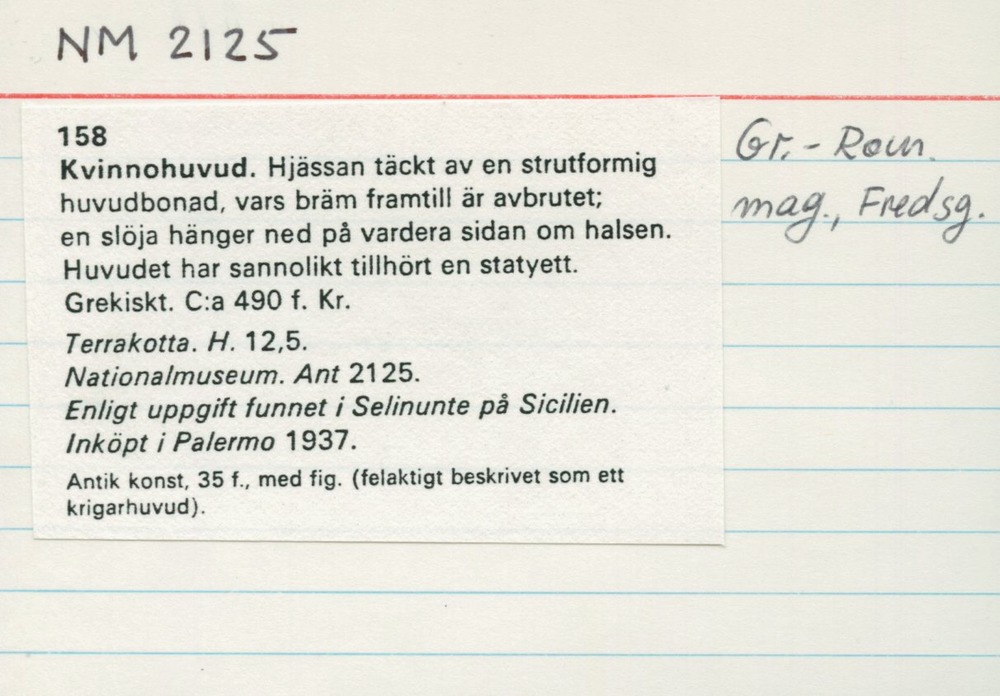 NM 2125
158
Kvinnohuvud. Hjässan täckt av en strutformig
huvudbonad, vars bräm framtill är avbrutet;
en slöja hänger ned på vardera sidan om halsen.
Huvudet har sannolikt tillhört en statyett.
Grekiskt. C:a 490 f. Kr.
Terrakotta. H. 12,5.
Nationalmuseum. Ant 2125.
Enligt uppgift funnet i Selinunte på Sicilien.
Inköpt i Palermo 1937.
Antik konst, 35 f., med fig. (felaktigt beskrivet som ett
krigarhuvud).
Gr.-Rom.
mag., Fredsg.